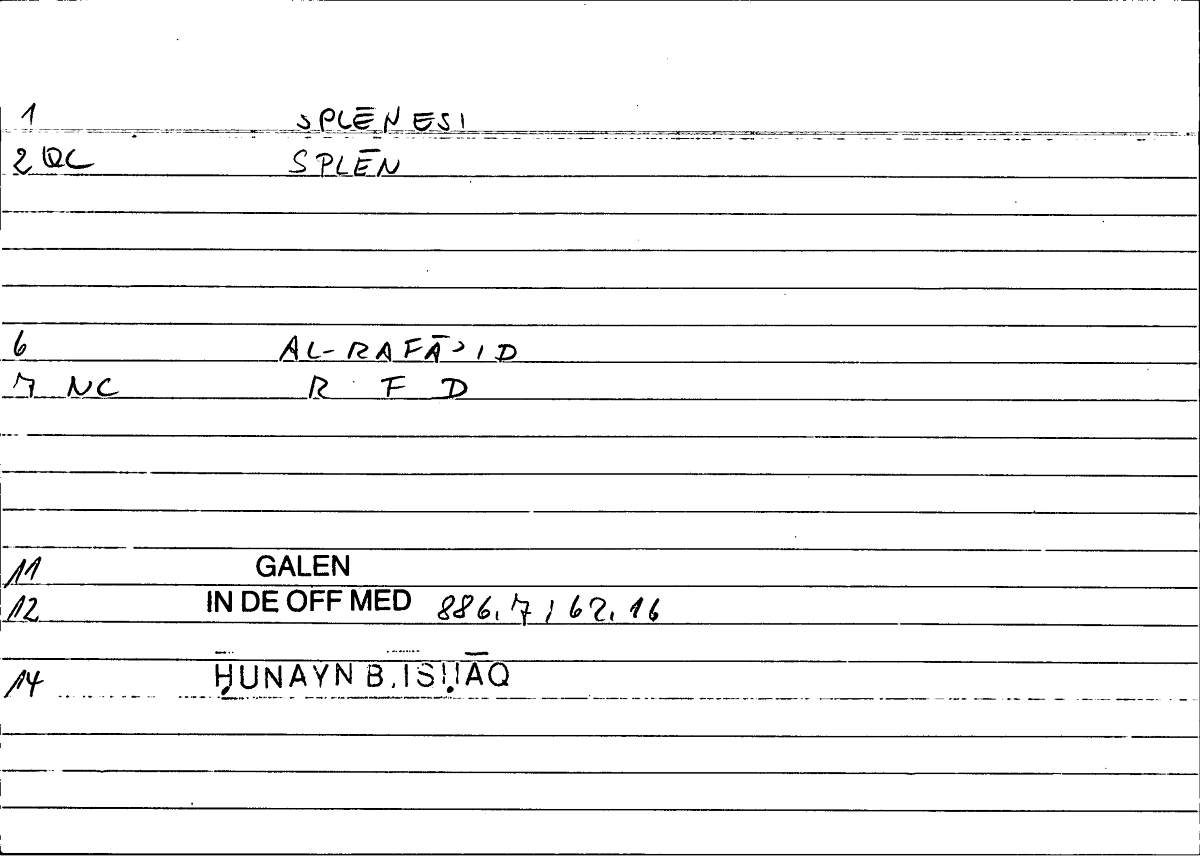 1 SPLĒNESI
2 QC SPLĒN
6 AL-RAFĀʾID
7 NC R F D
11 GALEN
12 IN DE OFF MED 886,7 / 62,16
14 ḤUNAYN B. ISḤĀQ